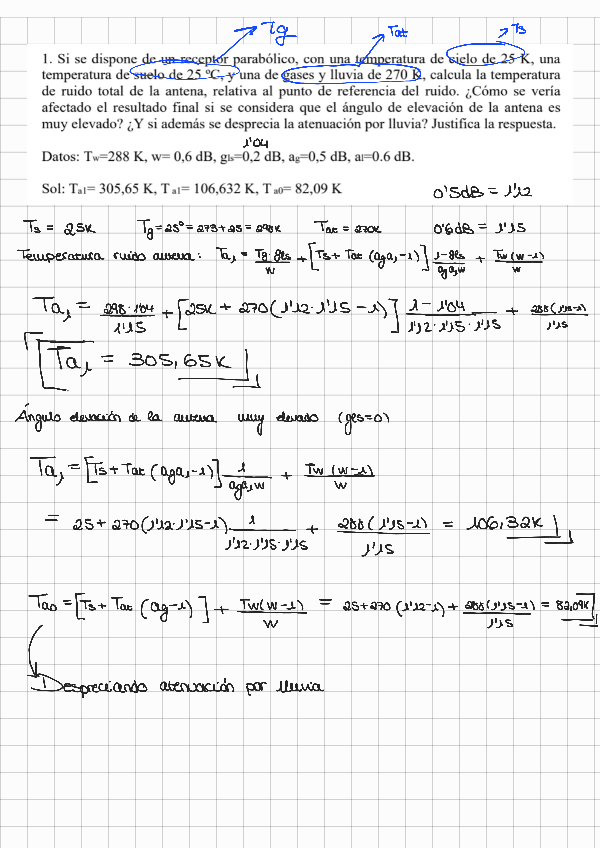 Tg
Tat
Ts
1. Si se dispone de un receptor parabólico, con una temperatura de cielo de 25 K, una
temperatura de suelo de 25 ºC, y una de gases y lluvia de 270 K, calcula la temperatura
de ruido total de la antena, relativa al punto de referencia del ruido. ¿Cómo se vería
afectado el resultado final si se considera que el ángulo de elevación de la antena es
muy elevado? ¿Y si además se desprecia la atenuación por lluvia? Justifica la respuesta.
1'04
Datos: Tw=288 K, w= 0,6 dB, gls=0,2 dB, ag=0,5 dB, al=0.6 dB.
Sol: Ta1= 305,65 K, T a1= 106,632 K, T a0= 82,09 K
0'5dB = 1'12
Ts = 25K Tg = 25° = 273+25 = 298K Tat = 270K 0'6dB = 1'15
Temperatura ruido antena: Ta1 = Tg·gls/w + [Ts + Tat (agal-1)] 1-gls/agalw + Tw(w-1)/w
Ta1 = 298·1'04/1'15 + [25K + 270(1'12·1'15-1)] 1-1'04/1'12·1'15·1'15 + 288(1'15-1)/1'15
Ta1 = 305,65K
Ángulo elevación de la antena muy elevado (gls=0)
Ta1 = [Ts + Tat (agal-1)] 1/agalw + Tw(w-1)/w
= 25+270(1'12·1'15-1)· 1/1'12·1'15·1'15 + 288(1'15-1)/1'15 = 106,32K
Ta0 = [Ts + Tat (ag-1)] + Tw(w-1)/w = 25+270(1'12-1) + 288(1'15-1)/1'15 = 82,09K
Despreciando atenuación por lluvia